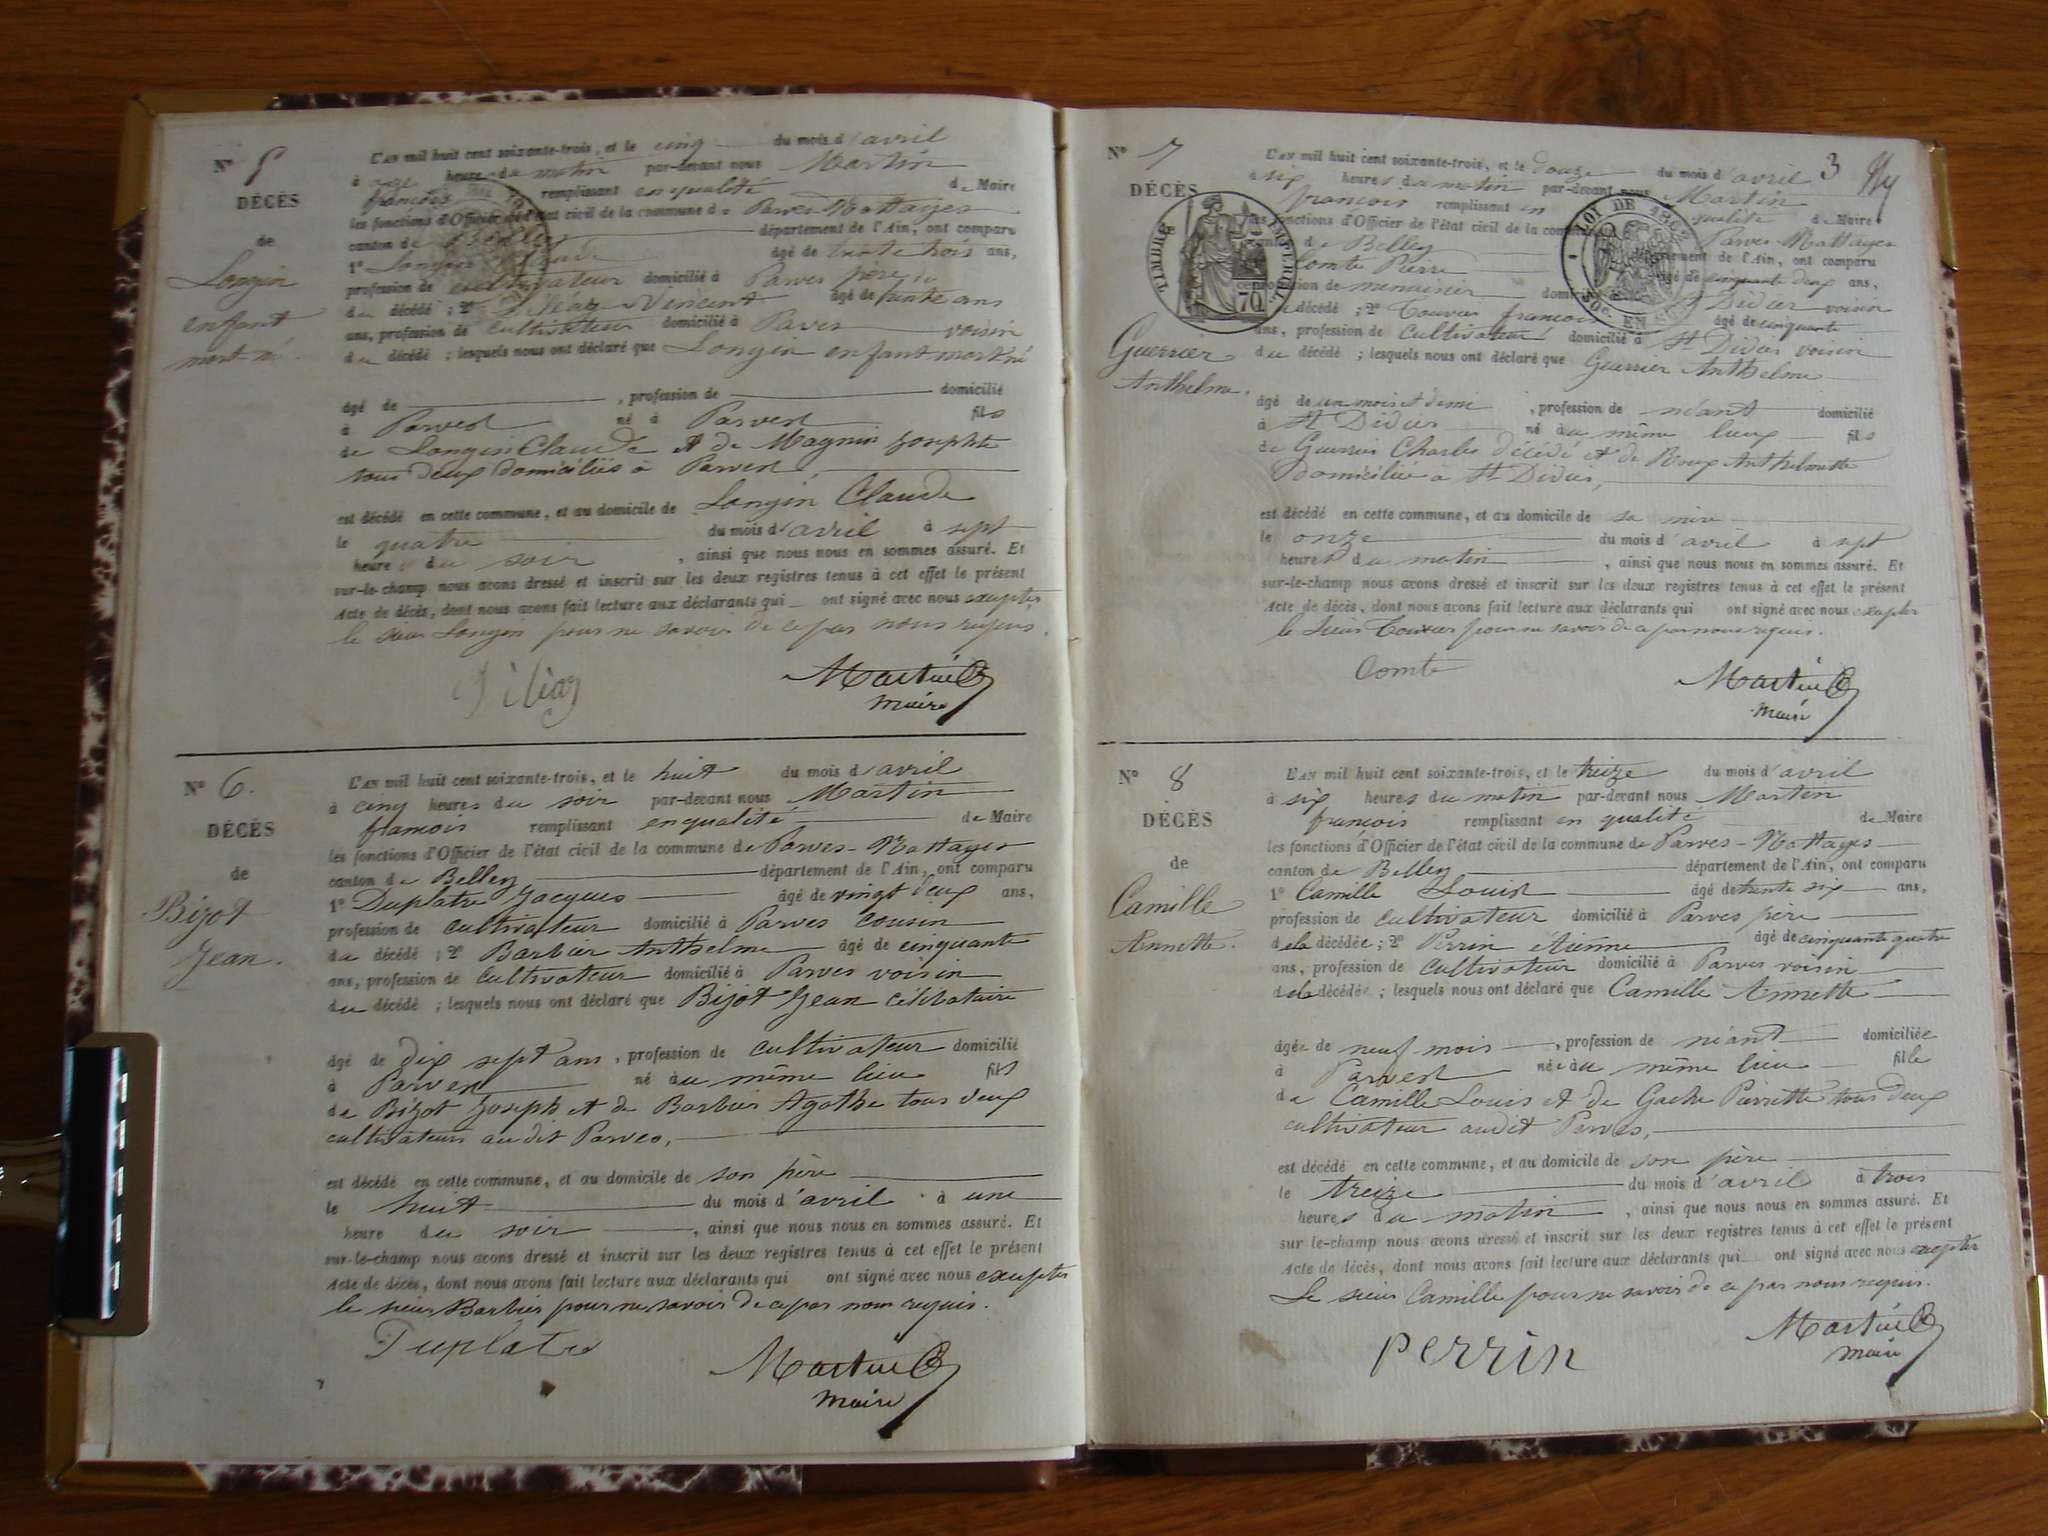 N° 5
DÉCÈS
de
Longin
enfant
mort né.
L'AN mil huit cent soixante-trois, et le cinq du mois d'avril
à onze heure du matin par-devant nous Martin
françois remplissant en qualité de Maire
les fonctions d'Officier de l'état civil de la commune de Parves-Nattages
canton de Belley département de l'Ain, ont comparu
1° Longin Claude âgé de trente trois ans,
profession de cultivateur domicilié à Parves père
du décédé ; 2° Vincent âgé de trente ans
ans, profession de cultivateur domicilié à Parves voisin
du décédé ; lesquels nous ont déclaré que Longin enfant mort né
âgé de , profession de domicilié
à Parves né à Parves fils
de Longin Claude et de Magnin Josephte
tous deux domiciliés à Parves,
est décédé en cette commune, et au domicile de Longin Claude
le quatre du mois d'avril à sept
heures du soir , ainsi que nous nous en sommes assuré. Et
sur-le-champ nous avons dressé et inscrit sur les deux registres tenus à cet effet le présent
Acte de décès, dont nous avons fait lecture aux déclarants qui ont signé avec nous excepter
le sieur Longin pour ne savoir de ce par nous requis.
Martin
maire
N° 6.
DÉCÈS
de
Bizot
Jean.
L'AN mil huit cent soixante-trois, et le huit du mois d'avril
à cinq heures du soir par-devant nous Martin
francois remplissant en qualité de Maire
les fonctions d'Officier de l'état civil de la commune de Parves-Nattages
canton de Belley département de l'Ain, ont comparu
1° Duplatre Jacques âgé de vingt deux ans,
profession de cultivateur domicilié à Parves cousin
du décédé ; 2° Barbier Anthelme âgé de cinquante
ans, profession de cultivateur domicilié à Parves voisin
du décédé ; lesquels nous ont déclaré que Bizot Jean célibataire
âgé de dix sept ans , profession de cultivateur domicilié
à Parves né au même lieu fils
de Bizot Joseph et de Barbier Agathe tous deux
cultivateurs au dit Parves,
est décédé en cette commune, et au domicile de son père
le huit du mois d'avril à une
heure du soir , ainsi que nous nous en sommes assuré. Et
sur-le-champ nous avons dressé et inscrit sur les deux registres tenus à cet effet le présent
Acte de décès, dont nous avons fait lecture aux déclarants qui ont signé avec nous excepter
le sieur Barbier pour ne savoir de ce par nous requis.
Duplatre
Martin
maire
3
N° 7
DÉCÈS
TIMBRE IMPÉRIAL
70
LOI DE 1862
Guerrier
Anthelme.
L'AN mil huit cent soixante-trois, et le douze du mois d'avril
à six heures du matin par-devant nous Martin
francois remplissant en qualité de Maire
les fonctions d'Officier de l'état civil de la commune de Parves-Nattages
canton de Belley département de l'Ain, ont comparu
Comte Pierre âgé de cinquante deux ans,
profession de menuisier domicilié à St Didier voisin
du décédé ; 2° françois âgé de cinquante
ans, profession de cultivateur domicilié à St Didier voisin
du décédé ; lesquels nous ont déclaré que Guerrier Anthelme
âgé de un mois et demi , profession de néant domicilié
à St Didier né au même lieux fils
de Guerrier Charles décédé et de Roux Anthelmette
domiciliée à St Didier,
est décédé en cette commune, et au domicile de sa mère
le onze du mois d'avril à sept
heures du matin , ainsi que nous nous en sommes assuré. Et
sur-le-champ nous avons dressé et inscrit sur les deux registres tenus à cet effet le présent
Acte de décès, dont nous avons fait lecture aux déclarants qui ont signé avec nous excepter
le sieur pour ne savoir de ce par nous requis.
Comte
Martin
maire
N° 8
DÉCÈS
de
Camille
Annette.
L'AN mil huit cent soixante-trois, et le treize du mois d'avril
à six heures du matin par-devant nous Martin
françois remplissant en qualité de Maire
les fonctions d'Officier de l'état civil de la commune de Parves-Nattages
canton de Belley département de l'Ain, ont comparu
1° Camille Louis âgé de trente six ans,
profession de cultivateur domicilié à Parves père
de la décédée ; 2° Perrin étienne âgé de cinquante quatre
ans, profession de cultivateur domicilié à Parves voisin
de la décédée ; lesquels nous ont déclaré que Camille Annette
âgée de neuf mois , profession de néant domiciliée
à Parves née au même lieu fille
de Camille Louis et de Gache Pierrette tous deux
cultivateur audit Parves,
est décédé en cette commune, et au domicile de son père
le treize du mois d'avril à trois
heures du matin , ainsi que nous nous en sommes assuré. Et
sur le-champ nous avons dressé et inscrit sur les deux registres tenus à cet effet le présent
Acte de décès, dont nous avons fait lecture aux déclarants qui ont signé avec nous excepter
Le sieur Camille pour ne savoir de ce par nous requis.
perrin
Martin
maire